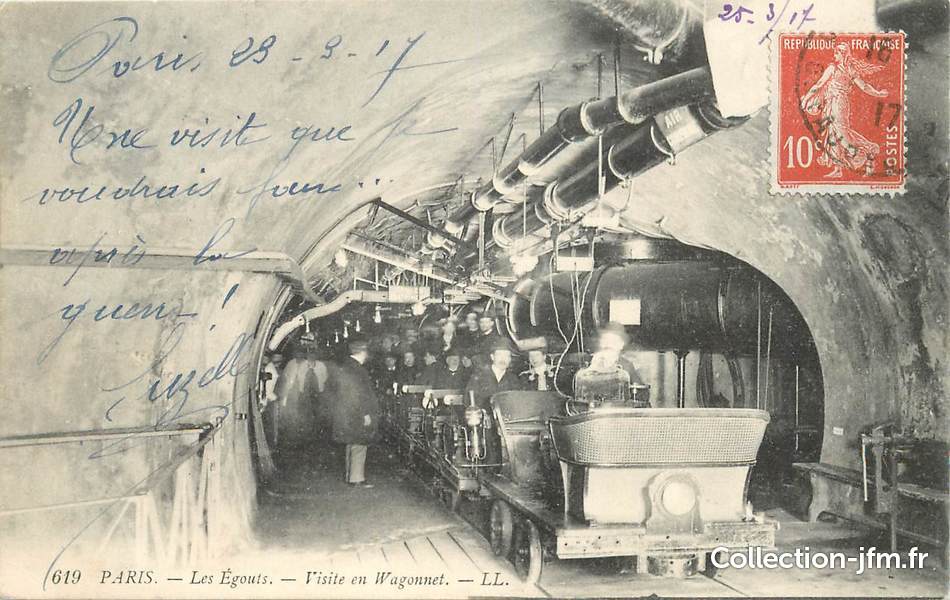 25-3/17
Paris, 23-3-17
Une visit que je
voudrais fair...
après la
guerr!
RÉPUBLIQUE FRANÇAISE
10c POSTES
17
619 PARIS. — Les Égouts. — Visite en Wagonnet. — LL.
Collection-jfm.fr